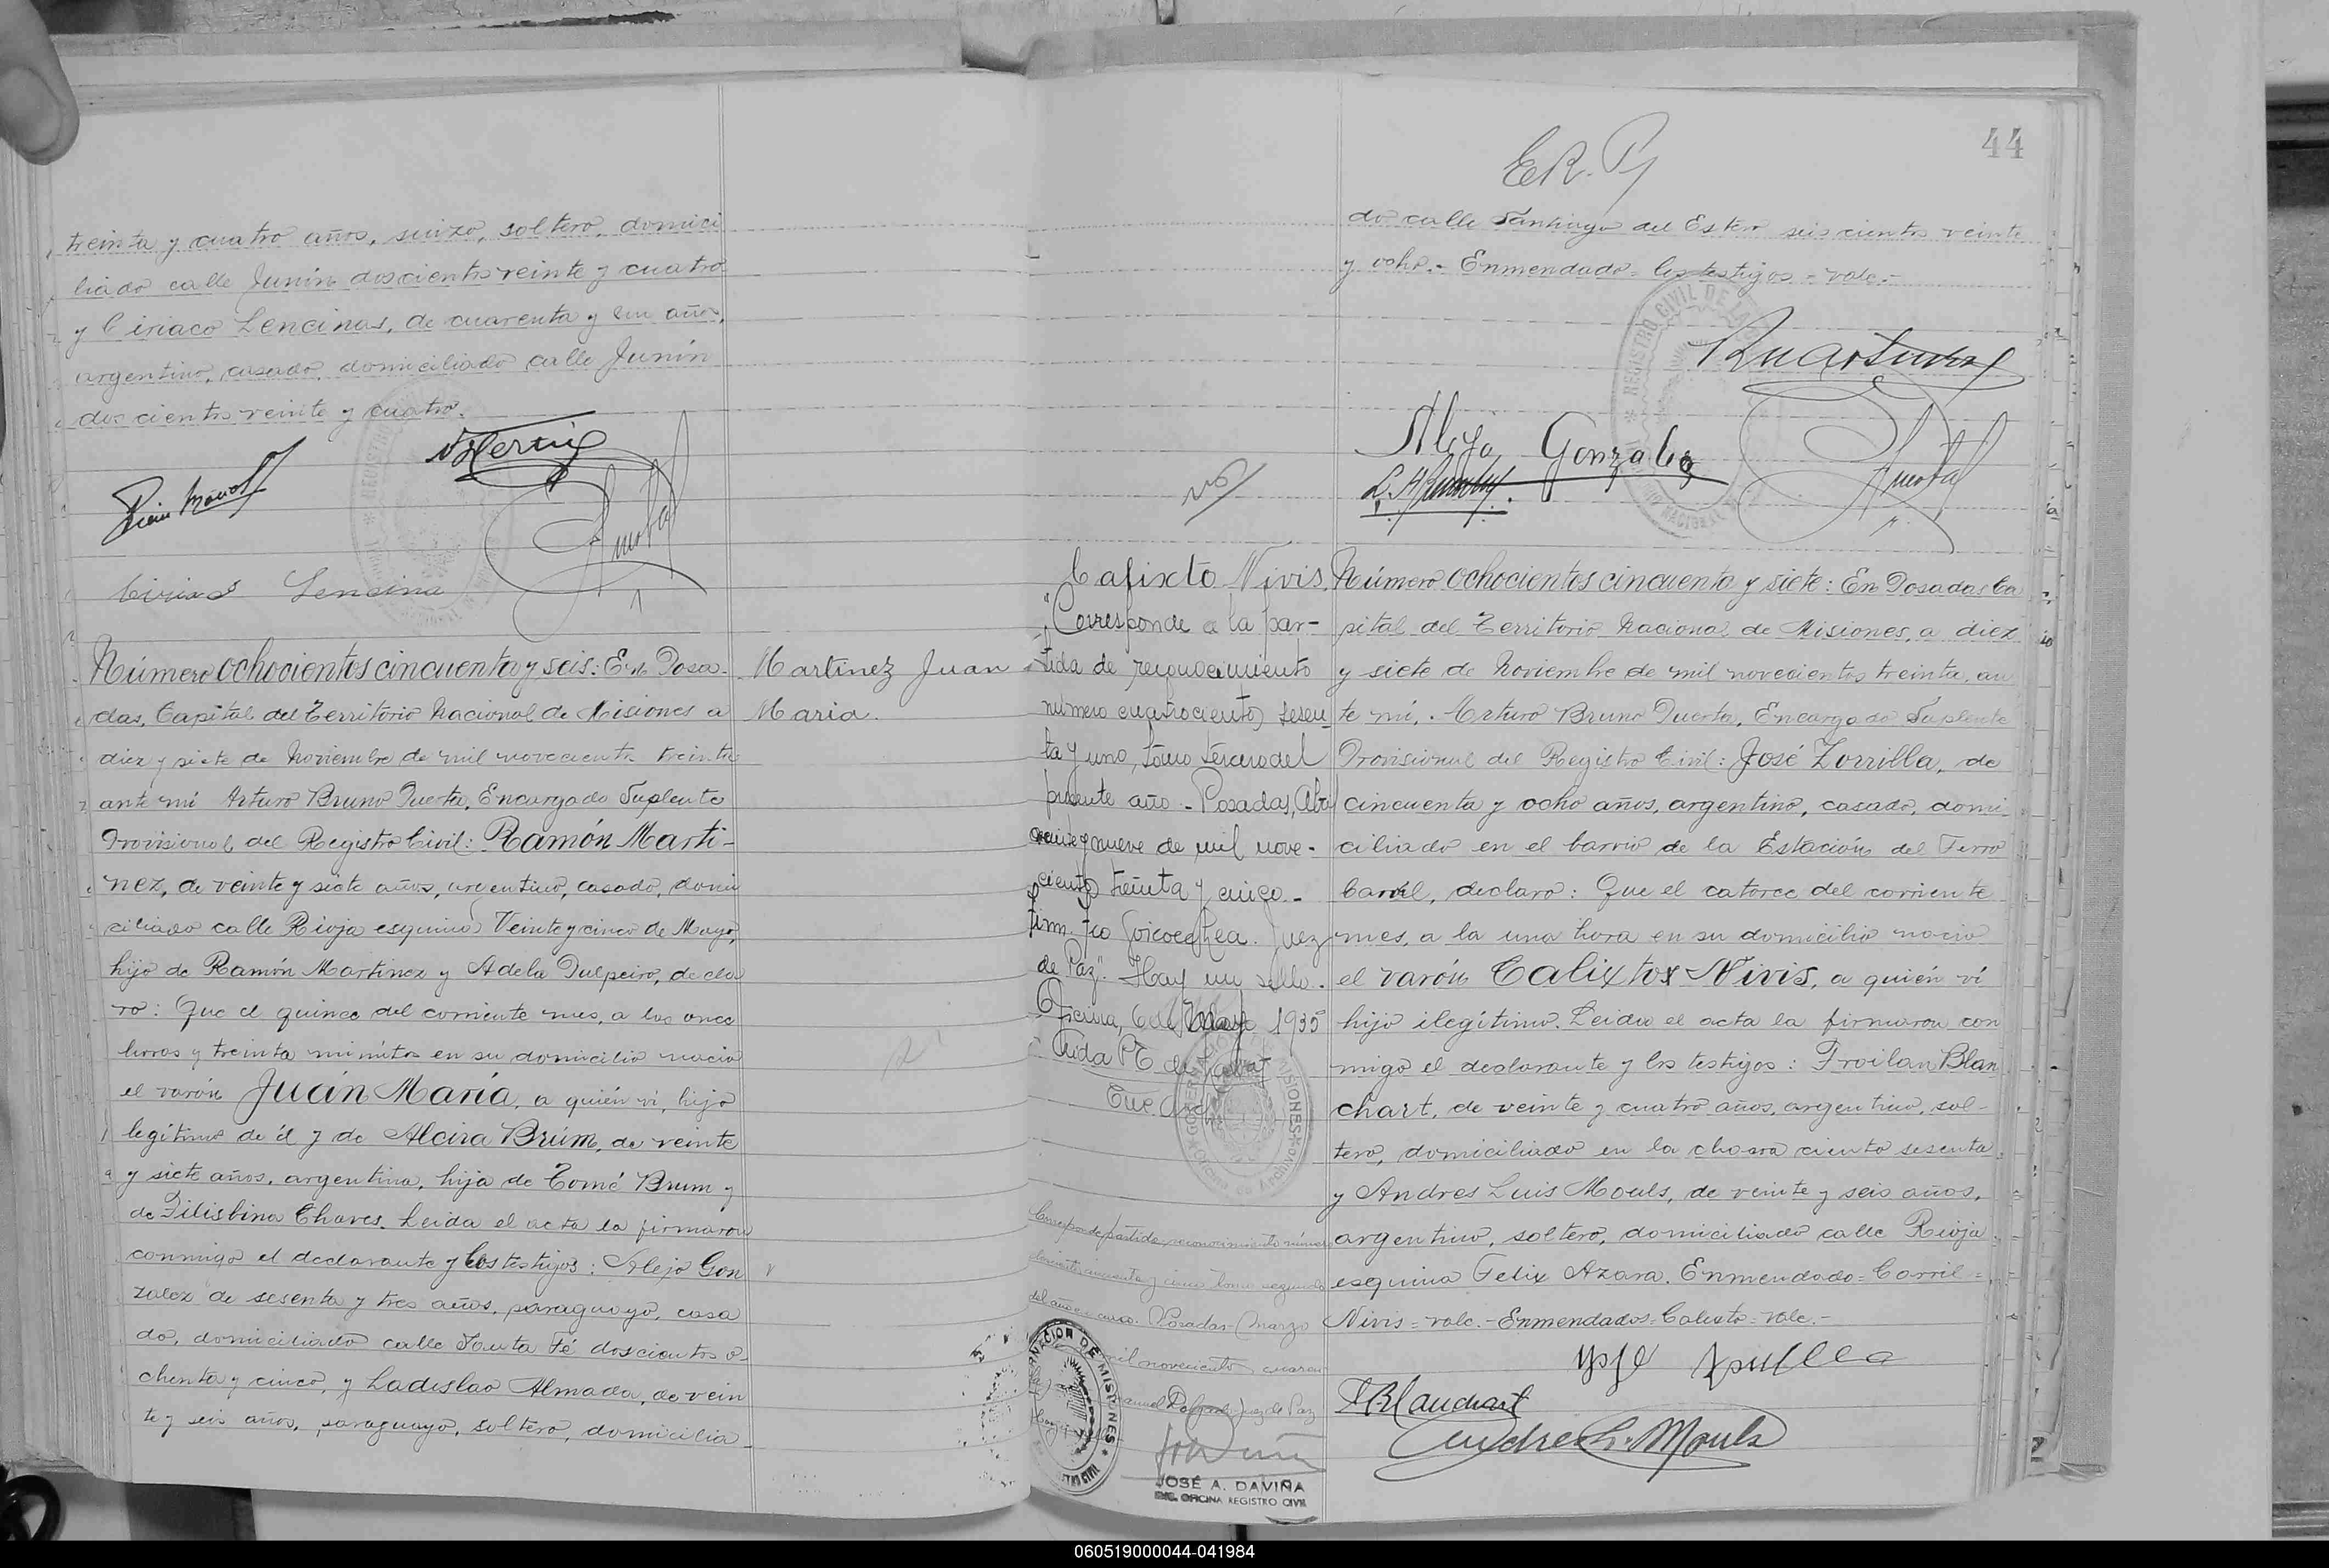 treinta y cuatro años, suizo, soltero, domici
liado calle Junín doscientos veinte y cuatro
y Ciriaco Lencinas, de cuarenta y un años,
argentino, casado, domiciliado calle Junín
doscientos veinte y cuatro.
Ciriaco Lencina
Número ochocientos cincuenta y seis: En Posa-
das, Capital del Territorio Nacional de Misiones a
diez y siete de Noviembre de mil novecientos treinta
ante mí Arturo Bruno Puerta, Encargado Suplente
Provisional del Registro Civil: Ramón Marti-
nez, de veinte y siete años, argentino, casado, domi
ciliado calle Rioja esquina Veinte y cinco de Mayo,
hijo de Ramón Martinez y Adela Pulpeiro, decla
ro: Que el quince del corriente mes, a las once
horas y treinta minutos en su domicilio nació
el varón Juan María, a quién vi, hijo
legítimo de él y de Alcira Brum, de veinte
y siete años, argentina, hija de Tomé Brum y
de Filisbina Chaves. Leida el acta la firmaron
conmigo el declarante y los testigos: Alejo Gon
zalez de sesenta y tres años, paraguayo, casa
do, domiciliado calle Santa Fé doscientos o-
chenta y cinco, y Ladislao Almada, de vein
te y seis años, paraguayo, soltero, domicilia
Martinez Juan
Maria.
44
E.R.P.
do calle Santiago del Estero seiscientos veinte
y ocho.- Enmendado= los testigos = vale.-
REGISTRO CIVIL DE LA
Alejo Gonzalez
Calixto Nivis.
"Corresponde a la par-
tida de reconocimiento
número cuatrocientos sesen-
ta y uno, tomo tercero del
presente año - Posadas, Abril
veinte y nueve de mil nove-
cientos treinta y cinco -
firm. Fco Goicoechea. Juez
de Paz". Hay un sello.
Oficina, 6 de Mayo 1935
Enc. Arch
MISIONES
Corresponde partida reconocimiento número
cincuenta y cinco tomo segundo
del año en curso. Posadas Marzo
mil novecientos cuaren
Manuel Delgado Juez de Paz
GOBERNACION DE MISIONES
REGISTRO CIVIL
JOSÉ A. DAVIÑA
ENC. OFICINA REGISTRO CIVIL
Número ochocientos cincuenta y siete: En Posadas Ca
pital del Territorio Nacional de Misiones, a diez
y siete de Noviembre de mil novecientos treinta, an
te mí, Arturo Bruno Puerta, Encargado Suplente
Provisional del Registro Civil: José Zorrilla, de
cincuenta y ocho años, argentino, casado, domi-
ciliado en el barrio de la Estación del Ferro
Carril, declaro: Que el catorce del corriente
mes, a la una hora en su domicilio nació
el varón Calixto Nivis, a quién vi
hijo ilegítimo. Leida el acta la firmaron con
migo el declarante y los testigos: Froilan Blan
chart, de veinte y cuatro años, argentino, sol-
tero, domiciliado en la chacra ciento sesenta
y Andres Luis Mouls, de veinte y seis años,
argentino, soltero, domiciliado calle Rioja
esquina Felix Azara. Enmendado= Carril=
Nivis= vale.- Enmendados= Calixto= vale.-
José Zorrilla
F. Blanchart
Andres L. Mouls
060519000044-041984